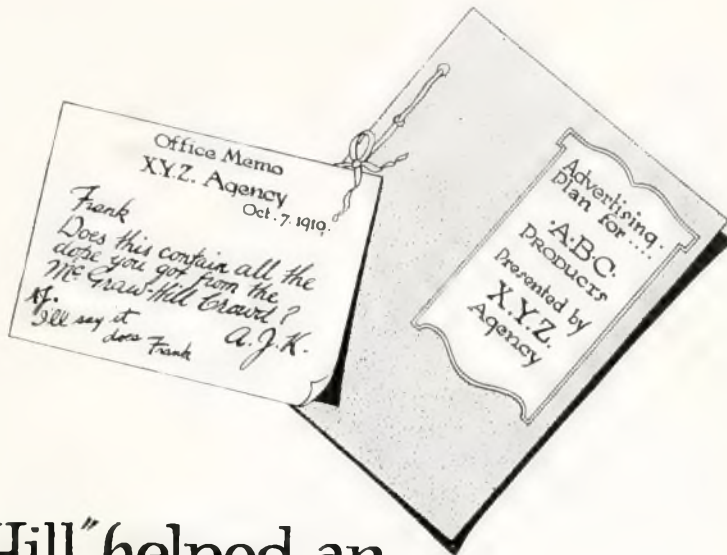 Office Memo
X.Y.Z. Agency
Oct. 7. 1919.
Frank
Does this contain all the
dope you got from the
McGraw-Hill Crowd?
A.J.K.
I'll say it
does Frank
Advertising
Plan for ....
A·B·C·
PRODUCTS
Presented by
X.Y.Z.
Agency
Hill" helped an